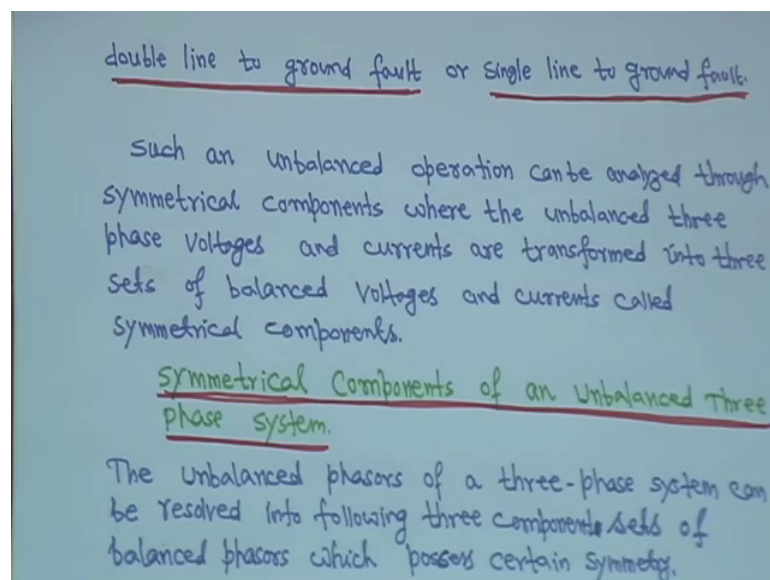 double line to ground fault or single line to ground fault.
Such an unbalanced operation can be analyzed through
symmetrical components where the unbalanced three
phase voltages and currents are transformed into three
sets of balanced voltages and currents called
symmetrical components.
Symmetrical Components of an Unbalanced Three
phase system.
The unbalanced phasors of a three-phase system can
be resolved into following three components sets of
balanced phasors which possess certain symmetry.